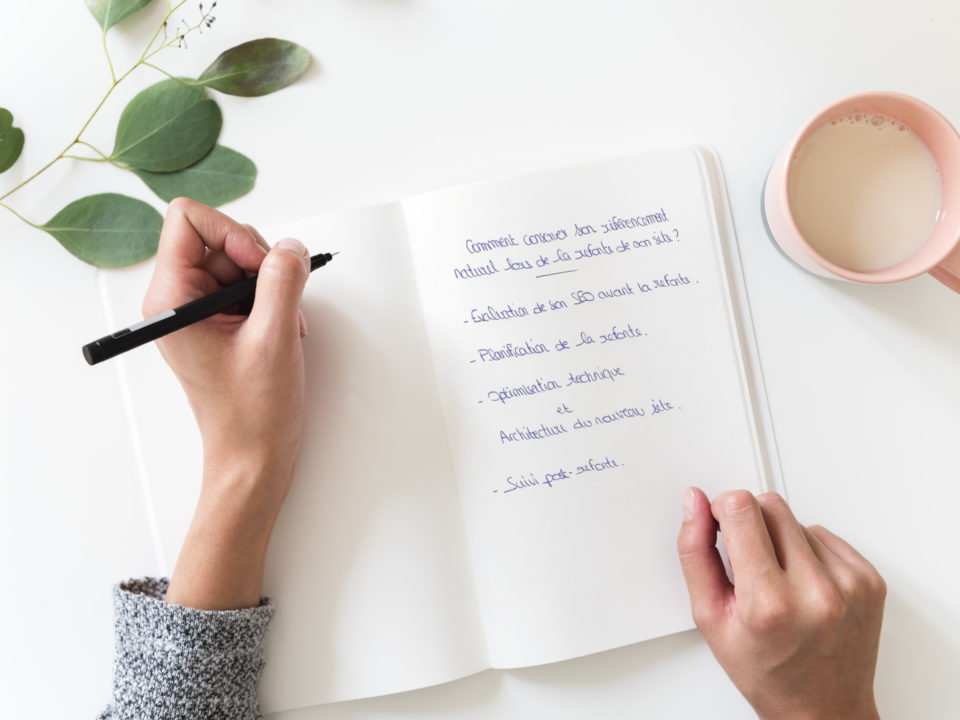 Comment conserver son référencement
naturel lors de la refonte de son site ?
- Évaluation de son SEO avant la refonte.
- Planification de la refonte.
- Optimisation technique
et
Architecture du nouveau site.
- Suivi post-refonte.